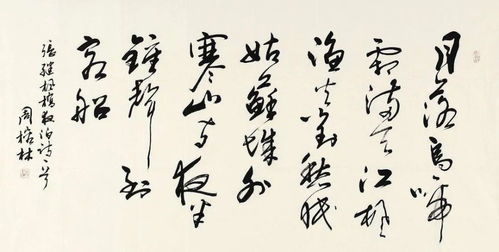 月落乌啼
霜满天江枫
渔火对愁眠
姑苏城外
寒山寺夜半
钟声到
客船
张继枫桥夜泊诗一首
周榕林